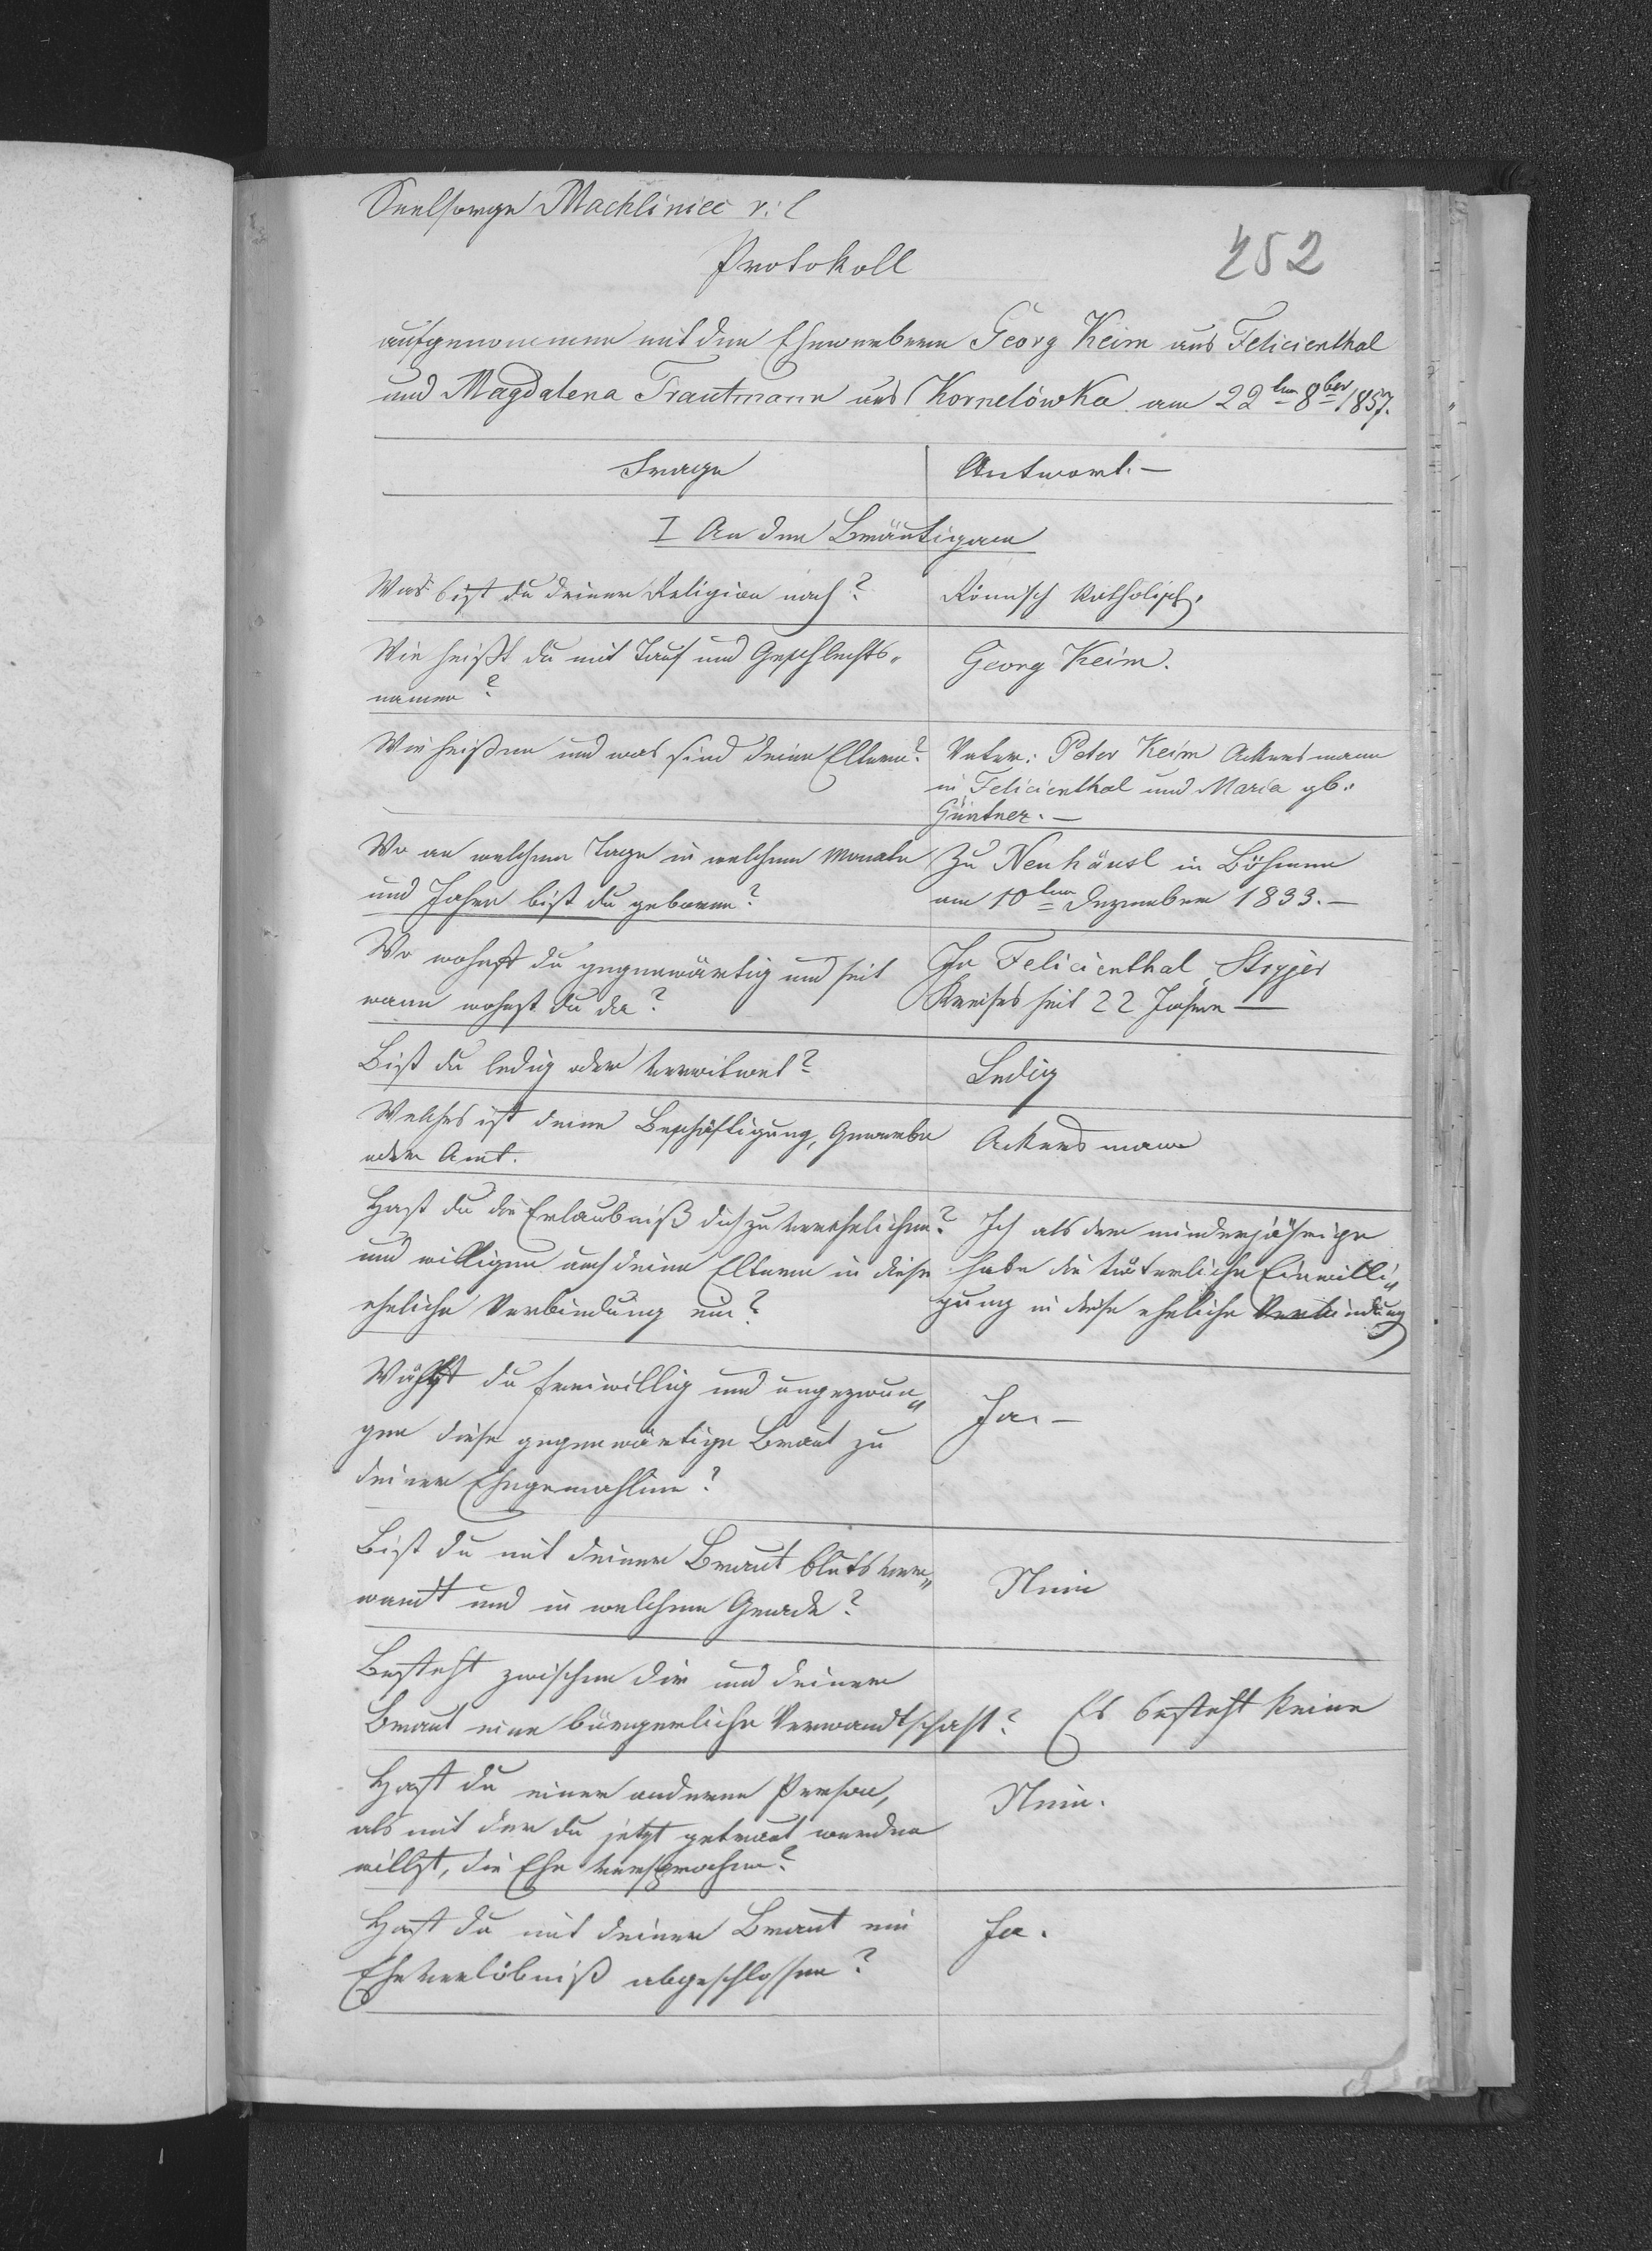 Seelsorge Machliniec r: l
Protokoll
252
aufgenommen mit den Ehewerbern Georg Keim aus Felicienthal
und Magdalena Trautmann aus Kornelówka am 22ten 8ber 1857.
Frage
Antwort. —
I An den Bräutigam
Was bist du deiner Religion nach?
Römisch katholisch.
Wie heißt du mit Tauf und Geschlechts-
namen?
Georg Keim.
Wie heißen und was sind deine Eltern?
Vater: Peter Keim Ackersmann
in Felicienthal und Maria gb.
Güntner. —
Wo an welchem Tage in welchem Monate
und Jahre bist du geboren?
Zu Neuhäusl in Böhmen
am 10ten Dezember 1833. —
Wo wohnst du gegenwärtig und seit
wann wohnst du da?
In Felicienthal, Stryjer
Kreises seit 22 Jahren —
Bist du ledig oder verwitwet?
Ledig
Welches ist deine Beschäftigung, Gewerbe
oder Amt.
Ackersmann
Hast du die Erlaubniß dich zu verehelichen?
und willigen auch deine Eltern in diese
eheliche Verbindung ein?
Ich als der minderjährige
habe die väterliche Einwilli-
gung in diese eheliche Verbindung
Wählst du freiwillig und ungezwun-
gen diese gegenwärtige Braut zu
deiner Ehegemahlinn?
Ja. —
Bist du mit deiner Braut blutsver-
wandt und in welchem Grade?
Nein
Besteht zwischen dir und deiner
Braut eine bürgerliche Verwandtschaft?
Es besteht keine
Hast du einer anderen Person,
als mit der du jetzt getraut werden
willst, die Ehe versprochen?
Nein.
Hast du mit deiner Braut ein
Eheverlöbniß abgeschlossen?
Ja.